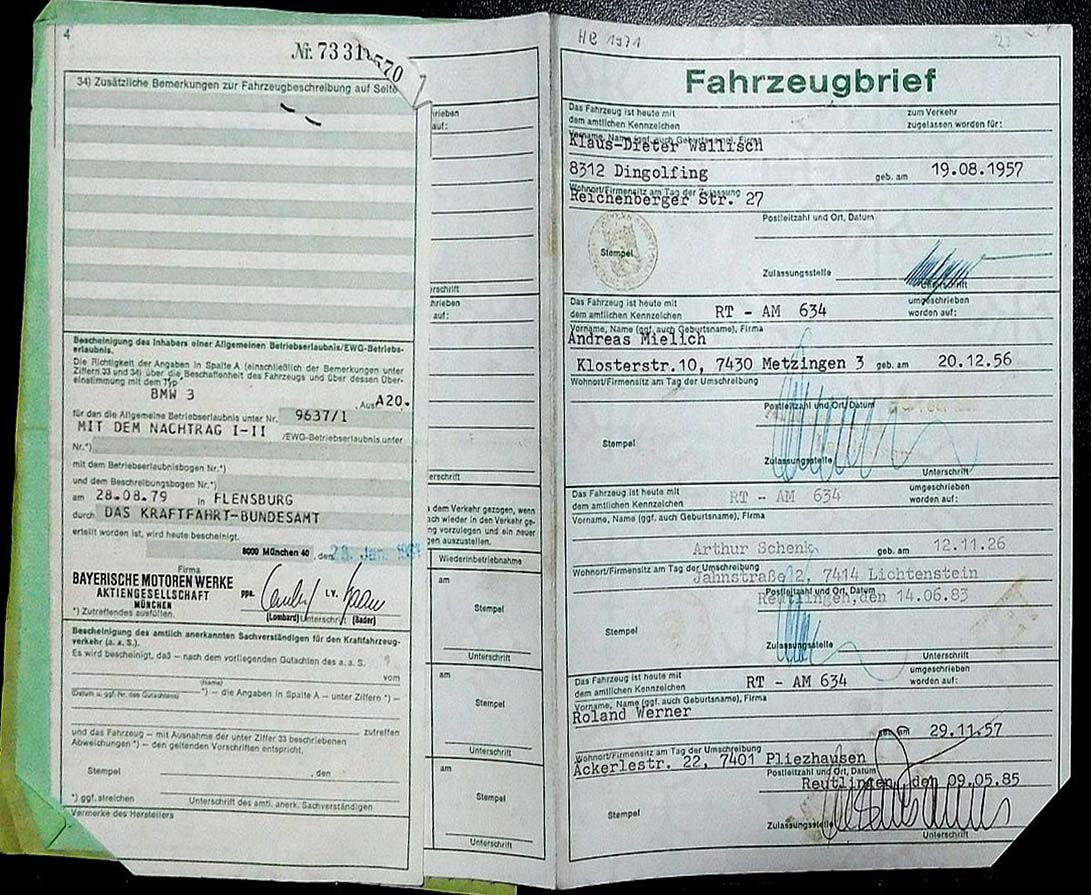 4
Nr. 73 31
570
34) Zusätzliche Bemerkungen zur Fahrzeugbeschreibung auf Seite
Bescheinigung des Inhabers einer Allgemeinen Betriebserlaubnis/EWG-Betriebs-
erlaubnis.
Die Richtigkeit der Angaben in Spalte A (einschließlich der Bemerkungen unter
Ziffern 33 und 34) über die Beschaffenheit des Fahrzeugs und über dessen Über-
einstimmung mit dem Typ
BMW 3
, Ausf. A20.
für den die Allgemeine Betriebserlaubnis unter Nr. 9637/1
MIT DEM NACHTRAG I-II /EWG-Betriebserlaubnis unter
Nr.*)
mit dem Betriebserlaubnisbogen Nr.*)
und dem Beschreibungsbogen Nr.*)
am 28.08.79 in FLENSBURG
durch DAS KRAFTFAHRT-BUNDESAMT
erteilt worden ist, wird heute bescheinigt.
8000 München 40, den
Firma
BAYERISCHE MOTOREN WERKE
AKTIENGESELLSCHAFT
MÜNCHEN
ppa. i.V.
(Lombard) Unterschrift (Bader)
*) Zutreffendes ausfüllen.
Bescheinigung des amtlich anerkannten Sachverständigen für den Kraftfahrzeug-
verkehr (a. a. S.).
Es wird bescheinigt, daß – nach dem vorliegenden Gutachten des a. a. S.
vom
(Name)
(Datum u. ggf. Nr. des Gutachtens) *) – die Angaben in Spalte A – unter Ziffern *) –
zutreffen
und das Fahrzeug – mit Ausnahme der unter Ziffer 33 beschriebenen
Abweichungen *) – den geltenden Vorschriften entspricht.
Stempel , den
*) ggf. streichen Unterschrift des amtl. anerk. Sachverständigen
Vermerke des Herstellers
rieben
auf:
erschrift
hrieben
auf:
erschrift
dem Verkehr gezogen, wenn
ach wieder in den Verkehr ge-
ng vorzulegen und ein neuer
gen auszustellen.
Wiederinbetriebnahme
am
Stempel
Unterschrift
am
Stempel
Unterschrift
am
Stempel
Unterschrift
HB 1971
Fahrzeugbrief
Das Fahrzeug ist heute mit zum Verkehr
dem amtlichen Kennzeichen zugelassen worden für:
Vorname, Name (ggf. auch Geburtsname), Firma
Klaus-Dieter Wallisch
8312 Dingolfing geb. am 19.08.1957
Wohnort/Firmensitz am Tag der Zulassung
Reichenberger Str. 27
Postleitzahl und Ort, Datum
Stempel
Zulassungsstelle
Unterschrift
Das Fahrzeug ist heute mit umgeschrieben
dem amtlichen Kennzeichen RT - AM 634 worden auf:
Vorname, Name (ggf. auch Geburtsname), Firma
Andreas Mielich
Klosterstr.10, 7430 Metzingen 3 geb. am 20.12.56
Wohnort/Firmensitz am Tag der Umschreibung
Postleitzahl und Ort, Datum
Stempel
Zulassungsstelle
Unterschrift
Das Fahrzeug ist heute mit umgeschrieben
dem amtlichen Kennzeichen RT - AM 634 worden auf:
Vorname, Name (ggf. auch Geburtsname), Firma
Arthur Schenk geb. am 12.11.26
Wohnort/Firmensitz am Tag der Umschreibung
Jahnstraße 2, 7414 Lichtenstein
Postleitzahl und Ort, Datum
Reutlingen, den 14.06.83
Stempel
Zulassungsstelle
Unterschrift
Das Fahrzeug ist heute mit umgeschrieben
dem amtlichen Kennzeichen RT - AM 634 worden auf:
Vorname, Name (ggf. auch Geburtsname), Firma
Roland Werner
geb. am 29.11.57
Wohnort/Firmensitz am Tag der Umschreibung
Ackerlestr. 22, 7401 Pliezhausen
Postleitzahl und Ort, Datum
Reutlingen, den 09.05.85
Stempel
Zulassungsstelle
Unterschrift